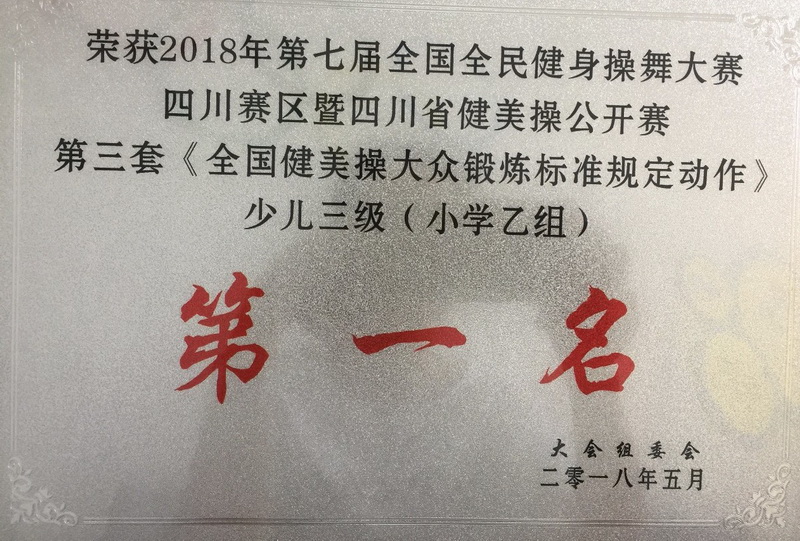 荣获2018年第七届全国全民健身操舞大赛
四川赛区暨四川省健美操公开赛
第三套《全国健美操大众锻炼标准规定动作》
少儿三级（小学乙组）
第一名
大会组委会
二零一八年五月